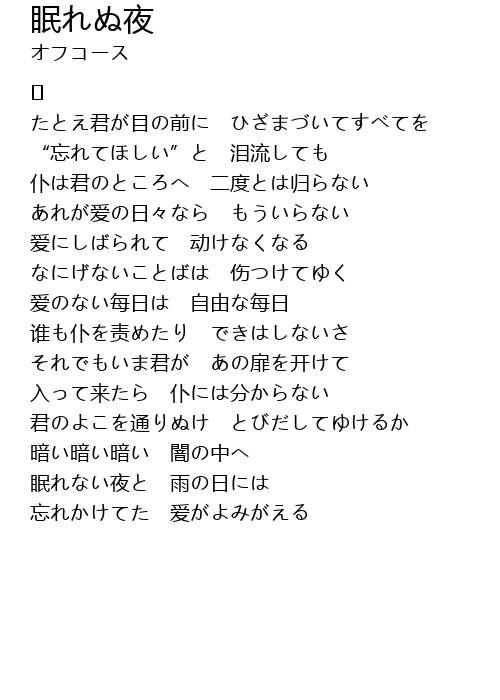 眠れぬ夜
オフコース
たとえ君が目の前に　ひざまづいてすべてを
“忘れてほしい”と　泪流しても
仆は君のところへ　二度とは归らない
あれが爱の日々なら　もういらない
爱にしばられて　动けなくなる
なにげないことばは　伤つけてゆく
爱のない每日は　自由な每日
谁も仆を责めたり　できはしないさ
それでもいま君が　あの扉を开けて
入って来たら　仆には分からない
君のよこを通りぬけ　とびだしてゆけるか
暗い暗い暗い　闇の中へ
眠れない夜と　雨の日には
忘れかけてた　爱がよみがえる